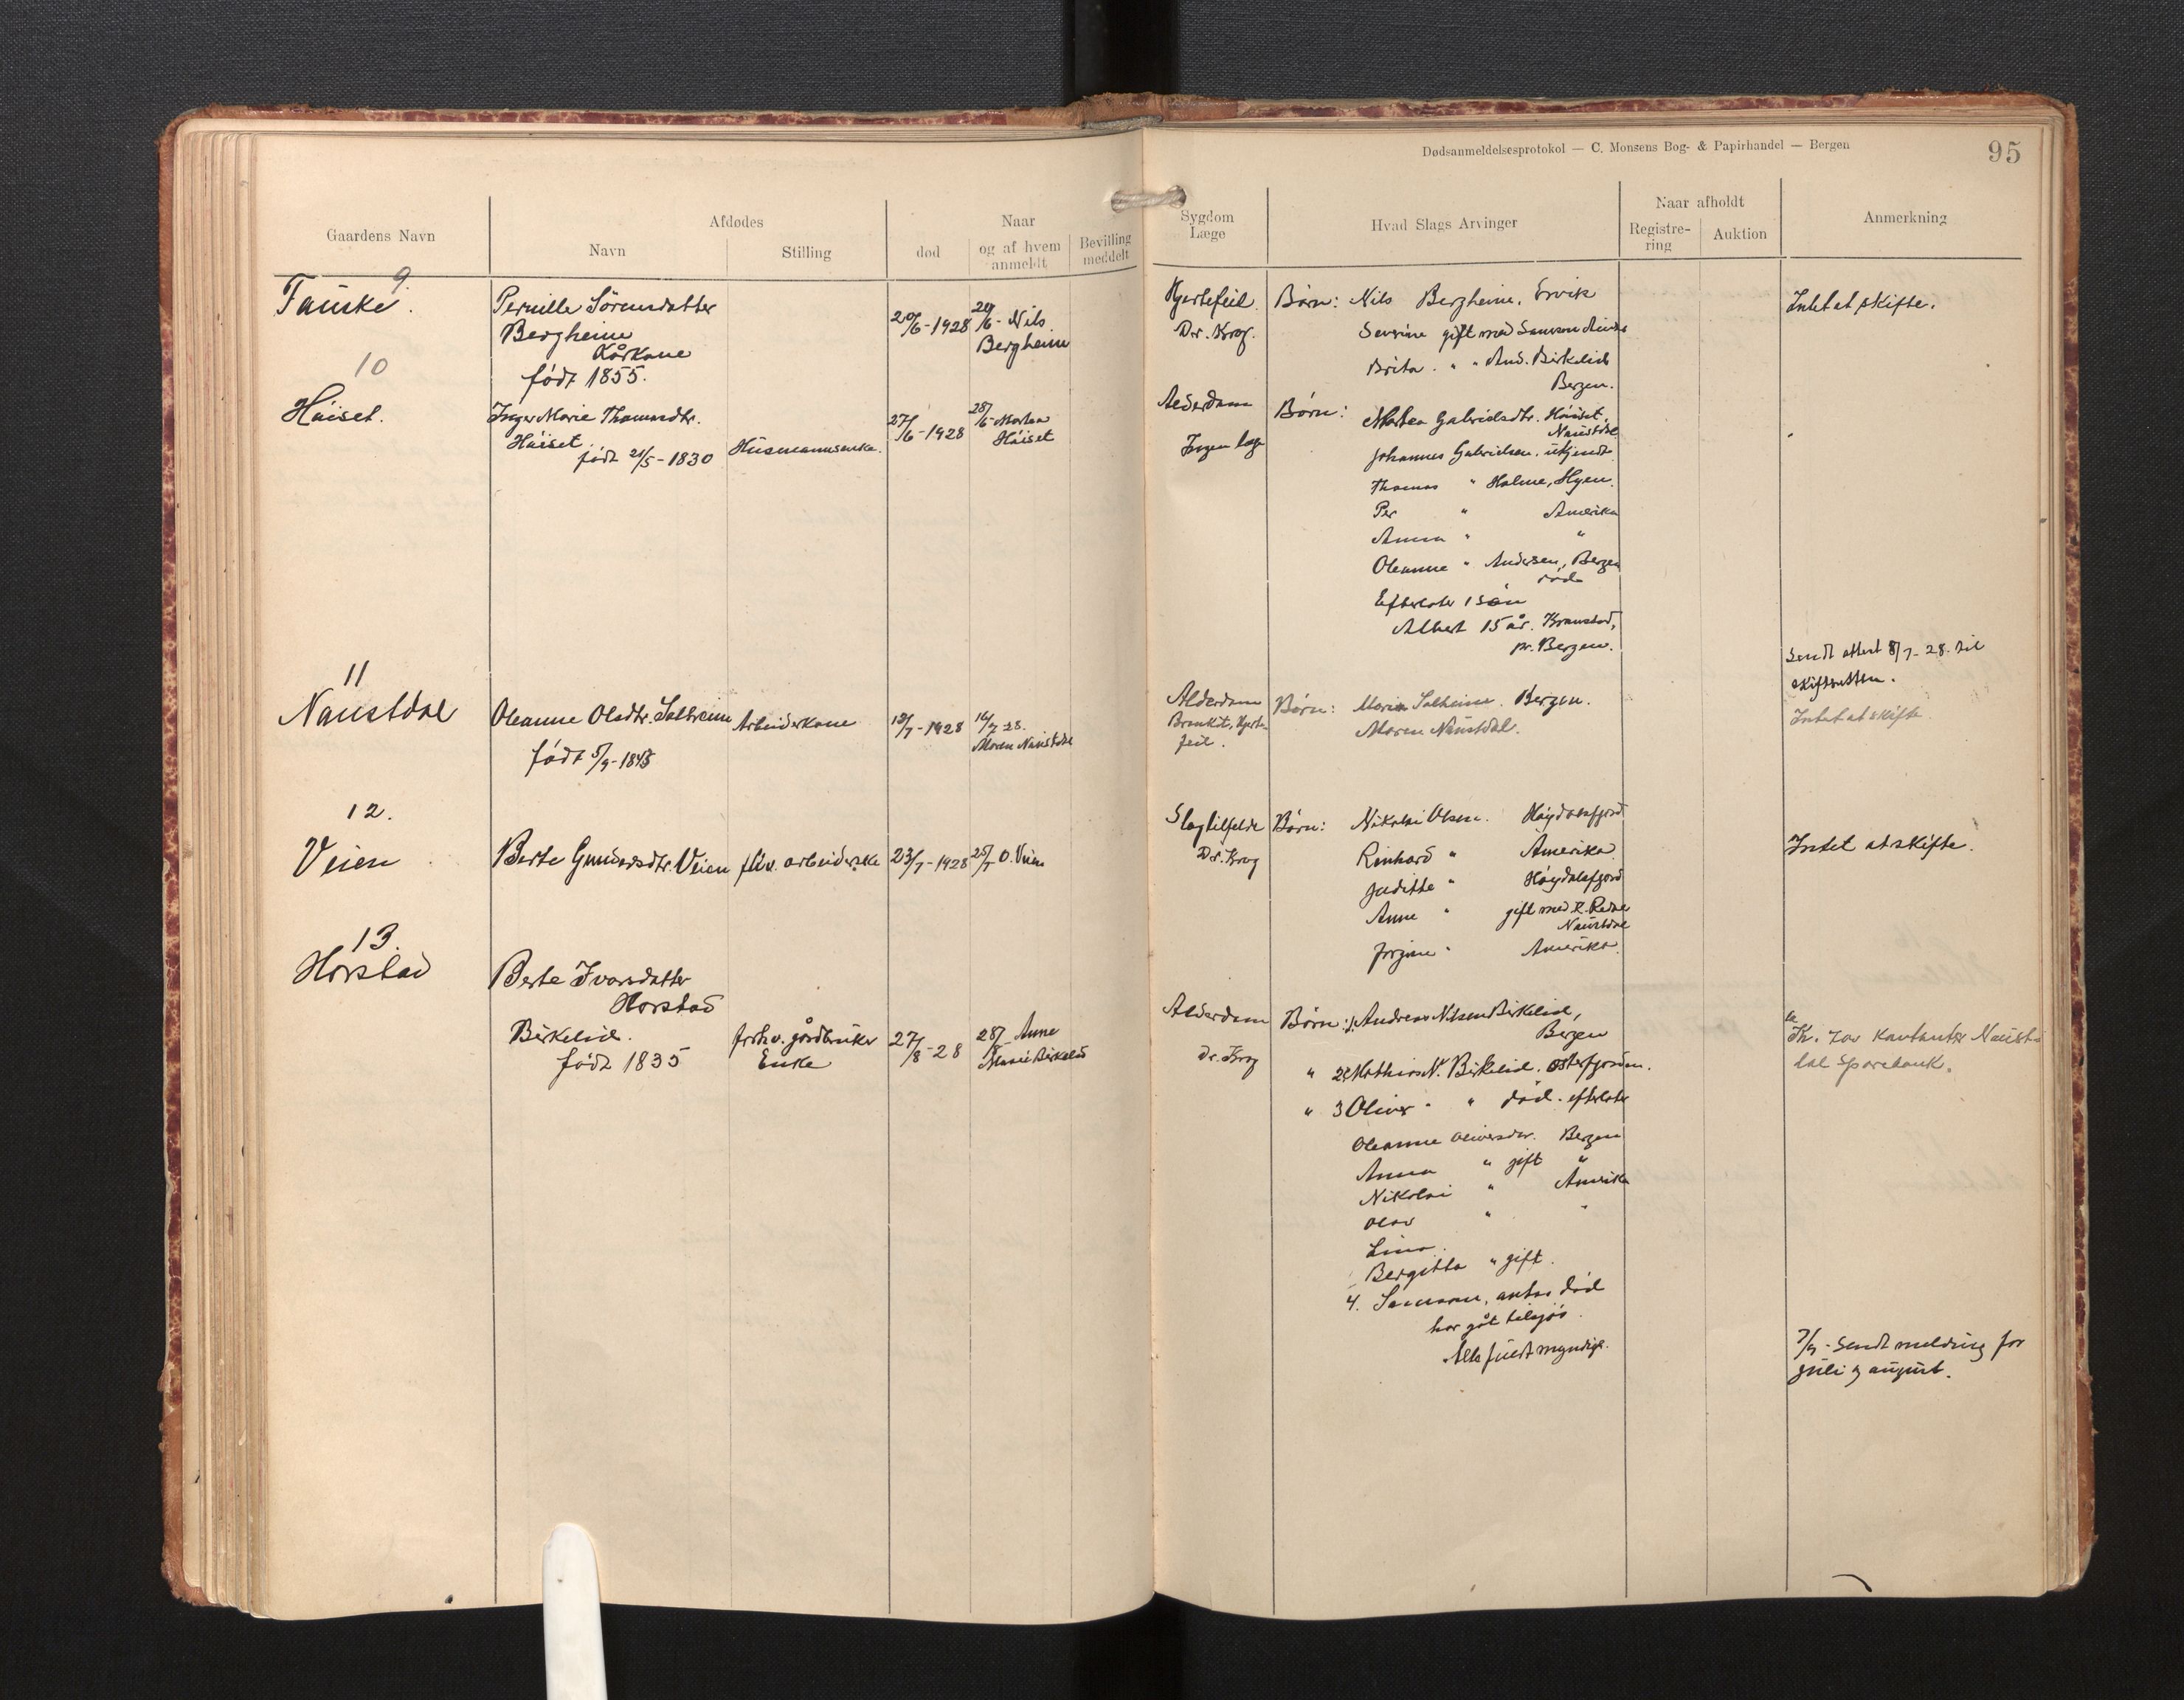 Dødsanmeldelsesprotokol — C. Monsens Bog- & Papirhandel — Bergen
95
Gaardens Navn
Afdødes
Navn
Stilling
død
Naar
og af hvem
anmeldt
Bevilling
meddelt
Sygdom
Læge
Hvad Slags Arvinger
Naar afholdt
Registre-
ring
Auktion
Anmerkning
9.
Tauske.
Pernille Sörensdatter
Bergheim
Kårkone
født 1855.
20/6-1928
20/6- Nils
Bergheim
Hjertefeil.
Dr. Krog.
Børn: Nils Bergheim. Ervik
Severine gift med Samson
Brita. " " And. Birkelid
Bergen.
Intet at skifte.
10
Håiset.
Inger Marie Thomasdtr.
Håiset.
født 21/5-1830
Husmannsenke.
27/6-1928
28/6- Marten
Håiset
Alderdom
Ingen læge
Børn: Marten Gabrielsdtr. Håiset.
Naustdal
Johannes Gabrielsen. ukjendt
Thomas " Holme, Hyen.
Per " Amerika
Anna " "
Oleanne " Andersen, Bergen
død
Efterlater 1 søn
Albert 15 år.
pr. Bergen.
Sendt attest 8/7-28. til
skifteretten.
11
Naustdal
Oleanne Olsdtr. Solheim
født 5/9-1843
Arbeiderkone
12/7-1928
16/7 28.
Maren Naustdal
Alderdom
Bronkit, Hjerte-
feil.
Børn: Maria Solheim. Bergen.
Maren Naustdal.
Intet at skifte
12.
Veien
Berte Gunnarsdtr. Veien
arbeiderske
23/7-1928
25/7 O. Veien
Slagtilfelde
Dr. Krog
Børn: Nikolai Olsen. Høydalsfjord
Reinhard " Amerika
Juditte " Høydalsfjord
Anne " gift med R. Redal
Naustdal
Jørgine " Amerika
Intet at skifte.
13.
Horstad
Berte Ivarsdatter
Horstad
Birkelid.
født 1835
forhv. gårdbruker
Enke
27/8-28
28/8 Anne
Marie Birkelid
Alderdom
Dr. Krog
Børn: 1. Andreas Nilsen Birkelid,
Bergen
" 2 Mathias N. Birkelid. Osterfjorden.
" 3 Oliver " " død. efterlater
Oleanne Oliversdtr. Bergen
Anna " gift "
Nikolai " Amerika
Olav " "
Lina
Bergitta " gift.
4. Samson, antas død
har gåt tilsjøs.
Alle fuldt myndige.
Kr. 700 kontanter Naust-
dal Sparebank.
7/9- Sendt melding for
juli og august.